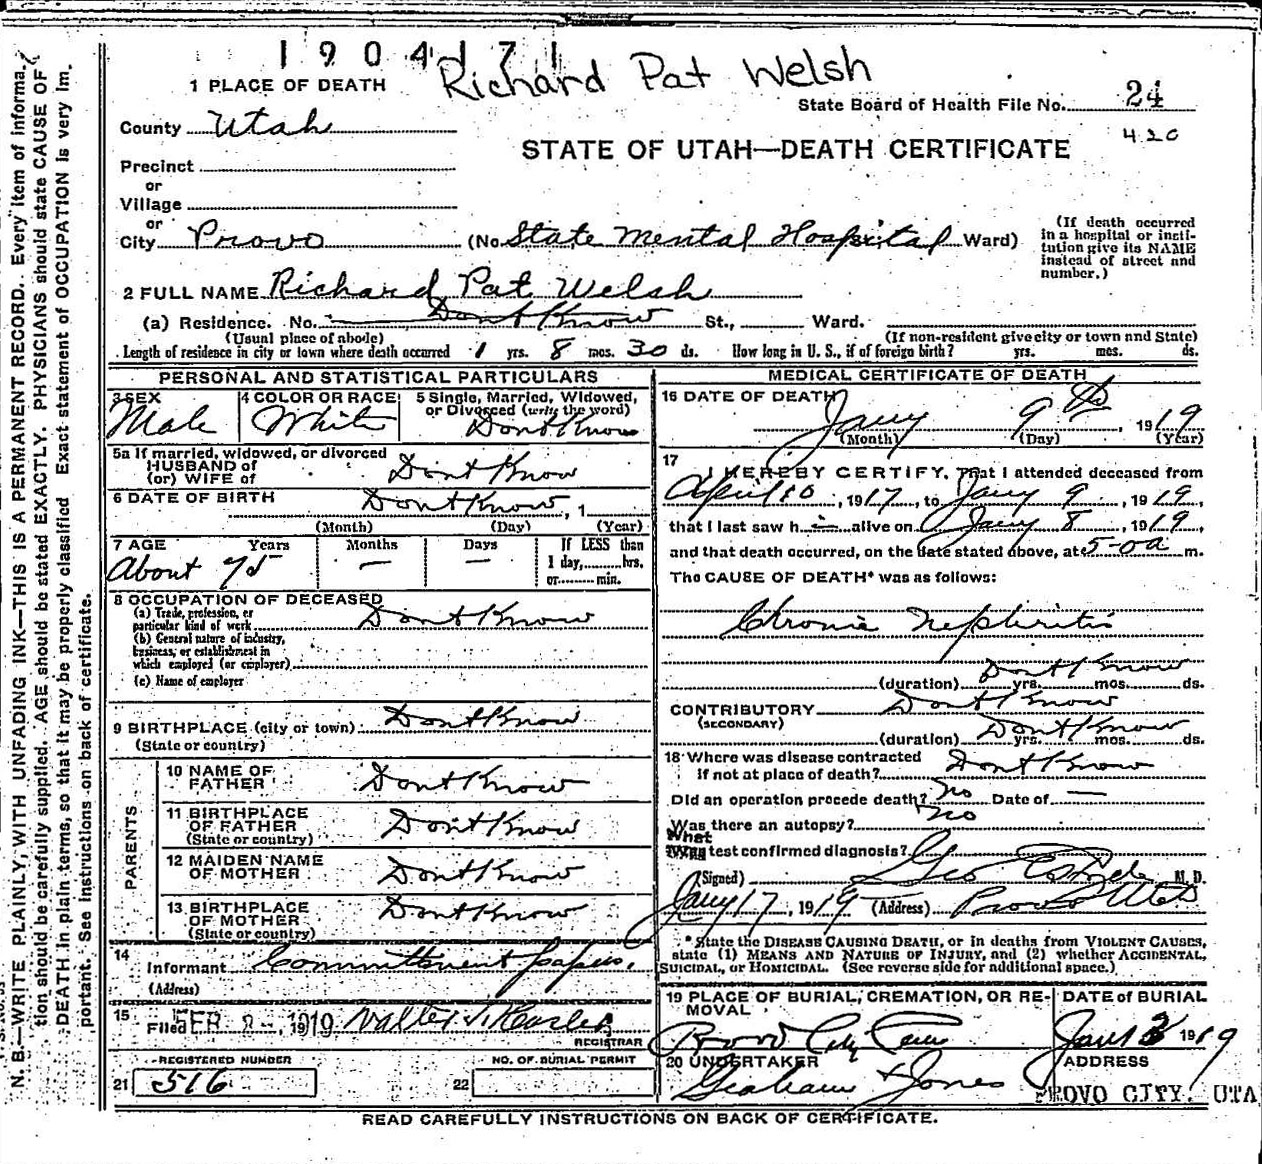 1904171
Richard Pat Welsh
1 PLACE OF DEATH
State Board of Health File No. 24
420
County Utah
STATE OF UTAH—DEATH CERTIFICATE
Precinct
or
Village
or
City Provo (No. State Mental Hospital Ward)
(If death occurred in a hospital or institution give its NAME instead of street and number.)
2 FULL NAME Richard Pat Welsh
(a) Residence. No. Dont Know St., Ward.
(Usual place of abode) (If non-resident give city or town and State)
Length of residence in city or town where death occurred 1 yrs. 8 mos. 30 ds. How long in U. S., if of foreign birth? yrs. mos. ds.
PERSONAL AND STATISTICAL PARTICULARS
3 SEX Male
4 COLOR OR RACE White
5 Single, Married, Widowed, or Divorced (write the word) Dont Know
5a If married, widowed, or divorced
HUSBAND of
(or) WIFE of Dont Know
6 DATE OF BIRTH Dont Know, 1
(Month) (Day) (Year)
7 AGE Years Months Days If LESS than
About 75 — — 1 day, hrs.
or min.
8 OCCUPATION OF DECEASED
(a) Trade, profession, or
particular kind of work Dont Know
(b) General nature of industry,
business, or establishment in
which employed (or employer)
(c) Name of employer
9 BIRTHPLACE (city or town) Dont Know
(State or country)
PARENTS
10 NAME OF FATHER Dont Know
11 BIRTHPLACE OF FATHER Dont Know
(State or country)
12 MAIDEN NAME OF MOTHER Dont Know
13 BIRTHPLACE OF MOTHER Dont Know
(State or country)
14 Informant Committment papers.
(Address)
15 Filed FEB 2 - 1919
REGISTRAR
REGISTERED NUMBER
21 516
NO. OF BURIAL PERMIT
22
MEDICAL CERTIFICATE OF DEATH
16 DATE OF DEATH
Jany 9th, 1919
(Month) (Day) (Year)
17
I HEREBY CERTIFY, That I attended deceased from
April 10, 1917, to Jany 9, 1919,
that I last saw h alive on Jany 8, 1919,
and that death occurred, on the date stated above, at 5-0a m.
The CAUSE OF DEATH* was as follows:
Chronic Nephritis
Dont Know
(duration) yrs. mos. ds.
CONTRIBUTORY Dont Know
(SECONDARY)
Dont Know
(duration) yrs. mos. ds.
18 Where was disease contracted
if not at place of death? Dont Know
Did an operation precede death? No Date of —
Was there an autopsy? No
What test confirmed diagnosis?
(Signed) Geo M. D.
Jany 17, 1919 (Address) Provo Utah
* State the DISEASE CAUSING DEATH, or in deaths from VIOLENT CAUSES,
state (1) MEANS AND NATURE OF INJURY, and (2) whether ACCIDENTAL,
SUICIDAL, or HOMICIDAL. (See reverse side for additional space.)
19 PLACE OF BURIAL, CREMATION, OR REMOVAL
Provo City Cem
DATE of BURIAL
Jan 1919
20 UNDERTAKER
Graham & Jones
ADDRESS
PROVO CITY, UTA
READ CAREFULLY INSTRUCTIONS ON BACK OF CERTIFICATE.
N. B.—WRITE PLAINLY, WITH UNFADING INK—THIS IS A PERMANENT RECORD. Every item of informa-
tion should be carefully supplied. AGE should be stated EXACTLY. PHYSICIANS should state CAUSE OF
DEATH in plain terms, so that it may be properly classified Exact statement of OCCUPATION is very im-
portant. See instructions on back of certificate.